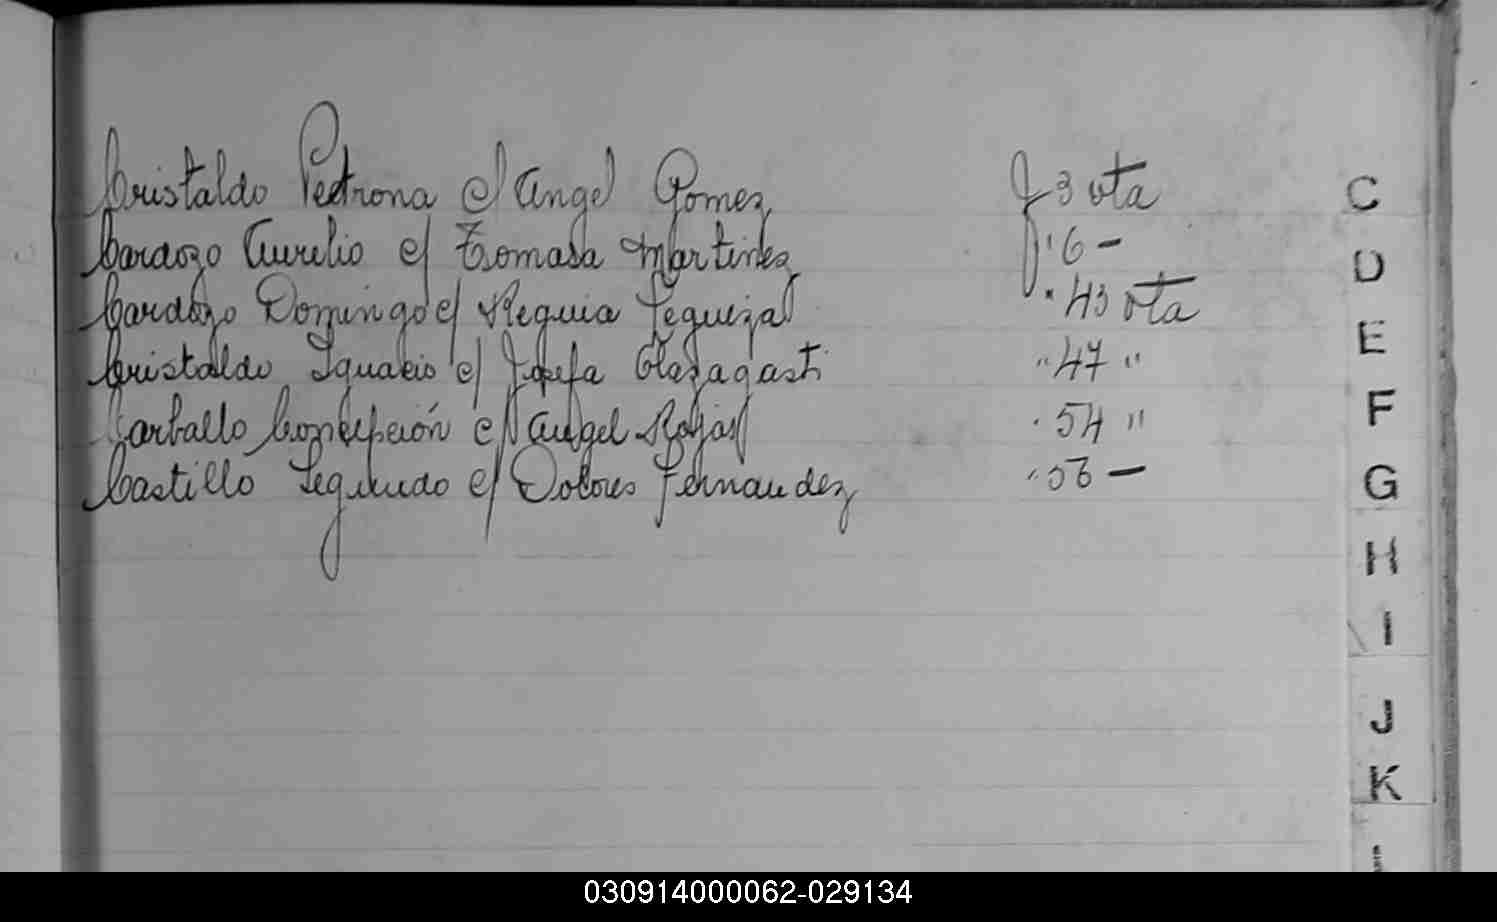 Cristaldo Petrona c/ Angel Gomez f 3 vta
Cardozo Aurelio c/ Tomasa Martinez " 6 -
Cardozo Domingo c/ Requia Leguizal " 43 vta
Cristaldo Ignacio c/ Josefa Olazagasti " 47 "
Carballo Concepción c/ Angel Rojas " 54 "
Castillo Segundo c/ Dolores Fernandez " 56 -
C
D
E
F
G
H
I
J
K
030914000062-029134